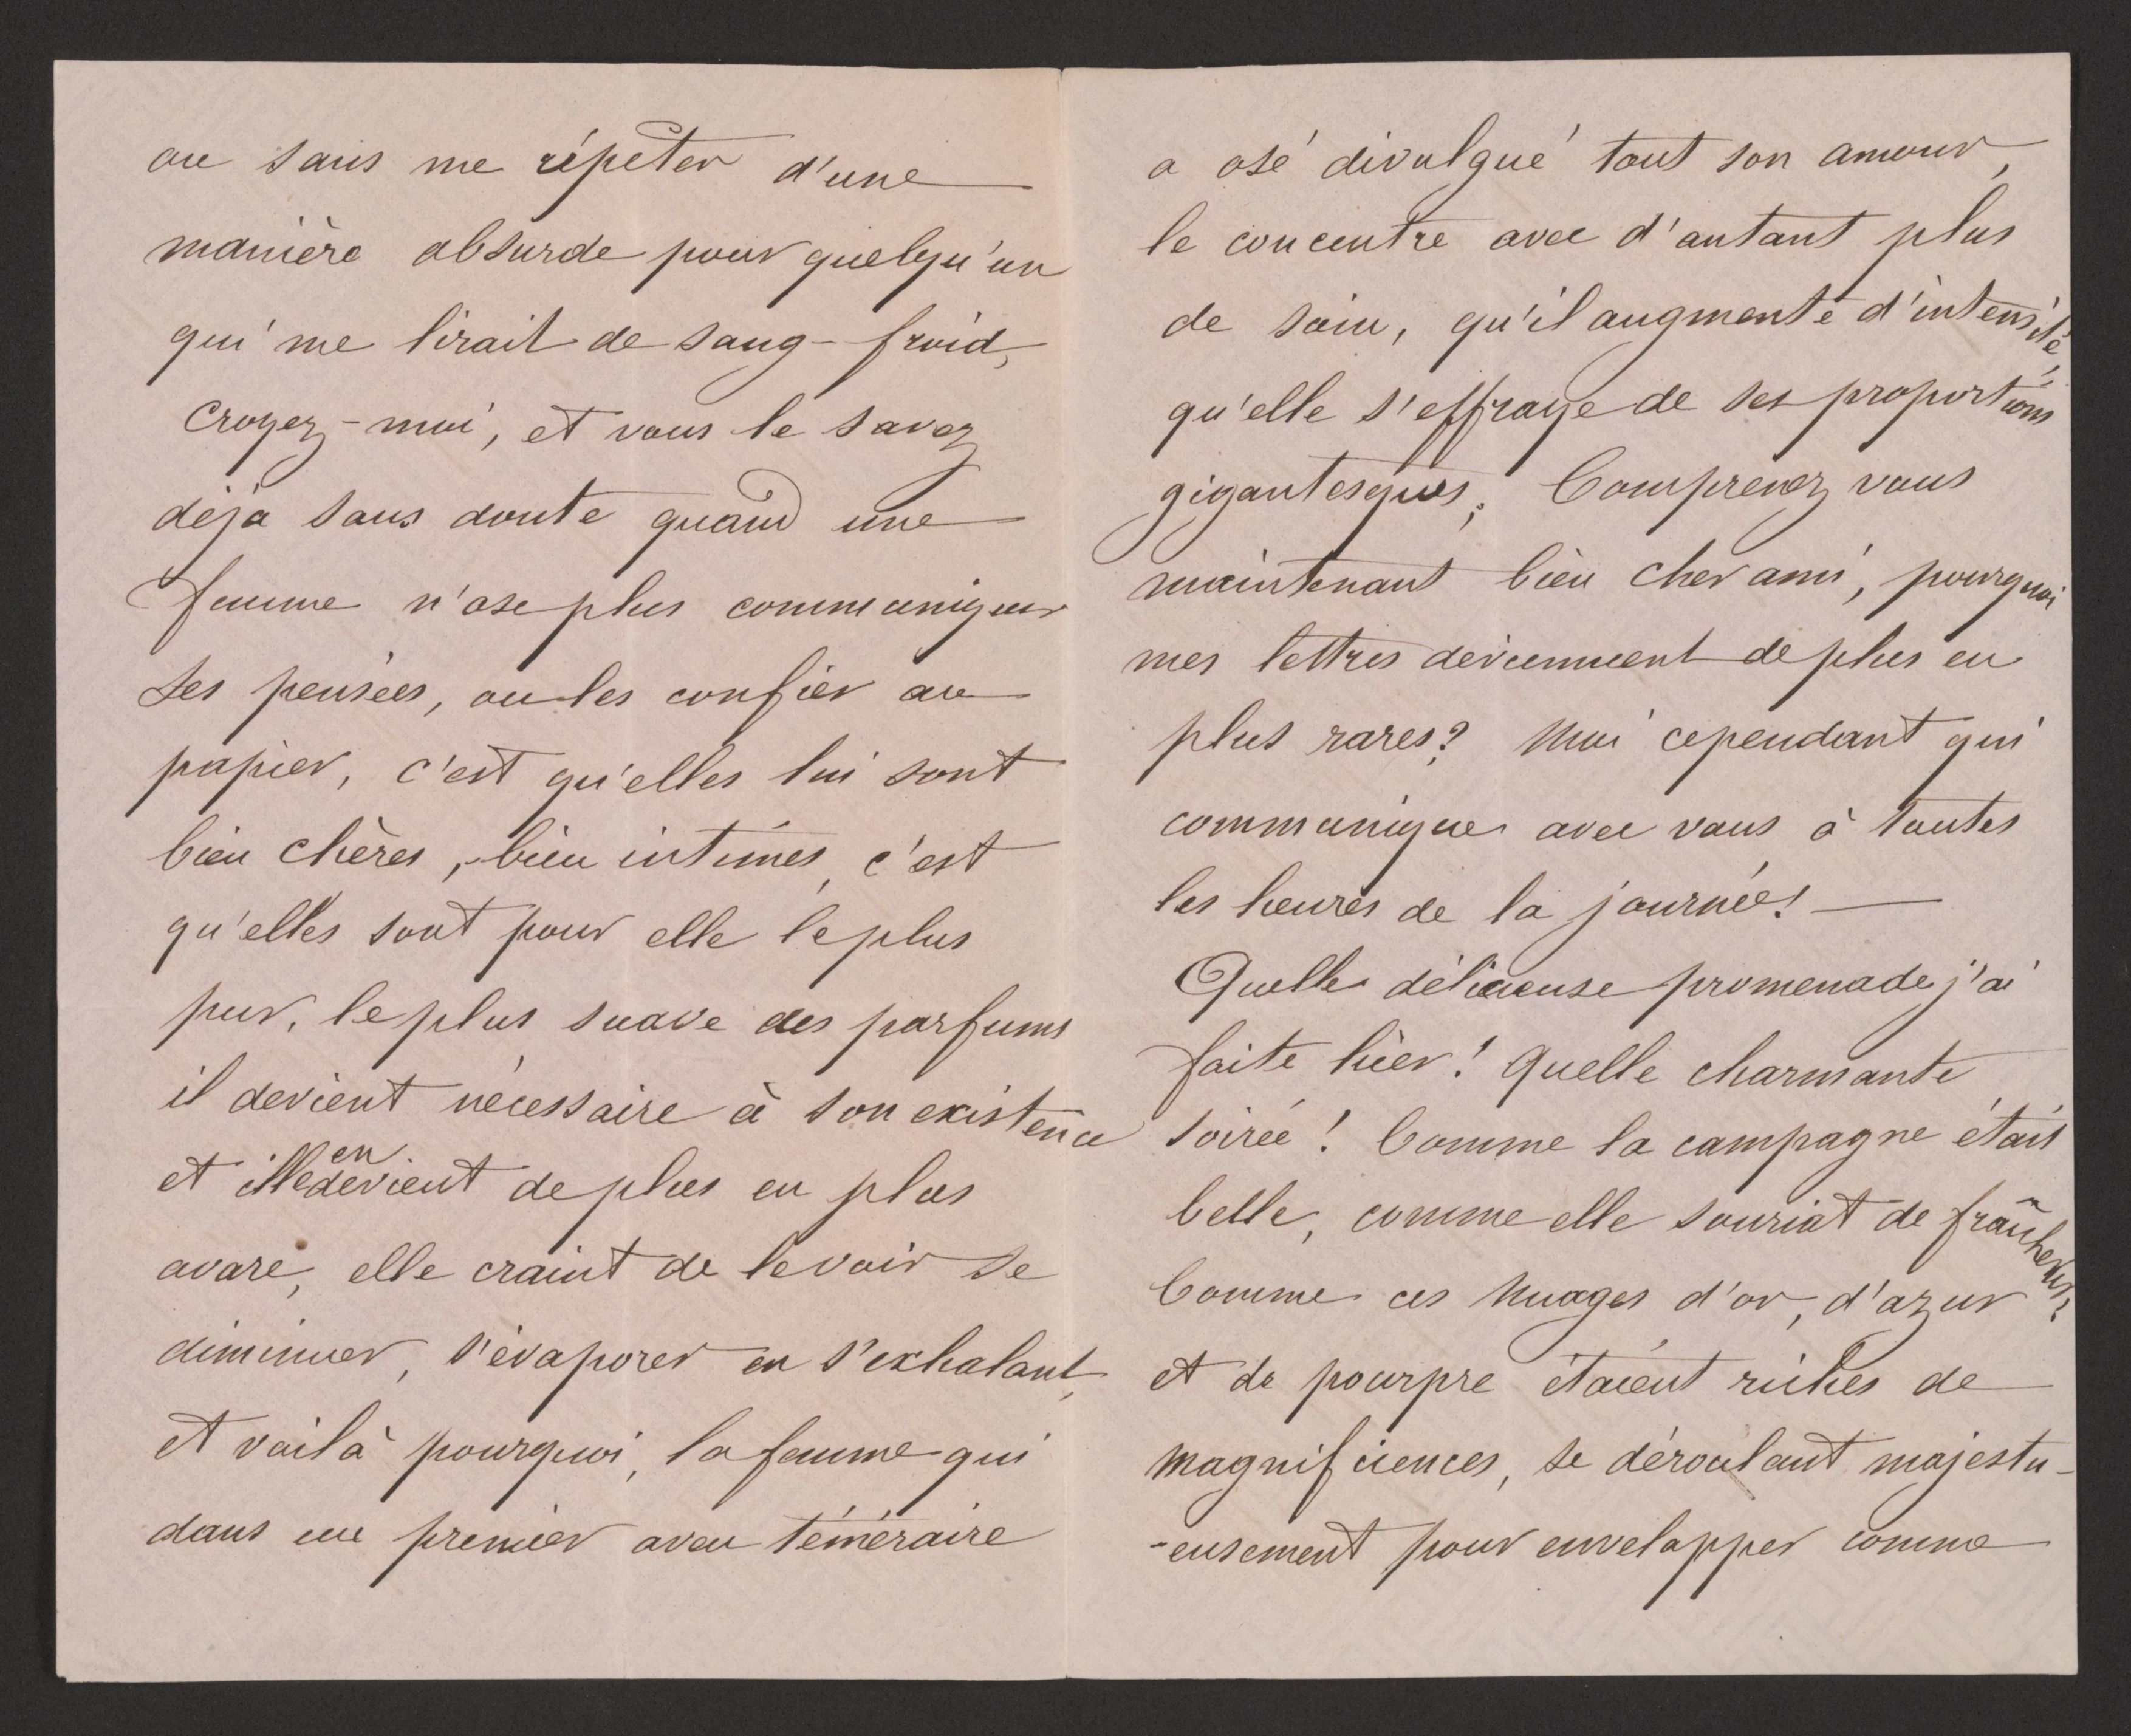 ou sans me répéter d'une
manière absurde pour quelqu'un
qui me lirait de sang-froid,
Croyez-moi, et vous le savez
déjà sans doute quand une
femme n'ose plus communiquer
ses pensées, ou les confier au
papier, c'est qu'elles lui sont
bien chères, bien intimes, c'est
qu'elles sont pour elle le plus
pur, le plus suave des parfums
il devient nécessaire à son existence
et elle en devient de plus en plus
avare, elle craint de le voir se
diminuer, s'évaporer en s'exhalant,
et voilà pourquoi, la femme qui
dans un premier aveu téméraire
a osé divulgué tout son amour,
le concentre avec d'autant plus
de soin, qu'il augmente d'intensité,
qu'elle s'effraye de ses proportions
gigantesques; Comprenez vous
maintenant bien cher ami, pourquoi
mes lettres deviennent de plus en
plus rares? Moi cependant qui
communique avec vous à toutes
les heures de la journée! —
Quelle délicieuse promenade j'ai
faite hier! Quelle charmante
soirée! Comme la campagne était
belle, comme elle souriat de fraîcheur,
Comme ces nuages d'or, d'azur
et de pourpre étaient riches de
magnificences, se déroulant majestu-
-eusement pour envelopper comme